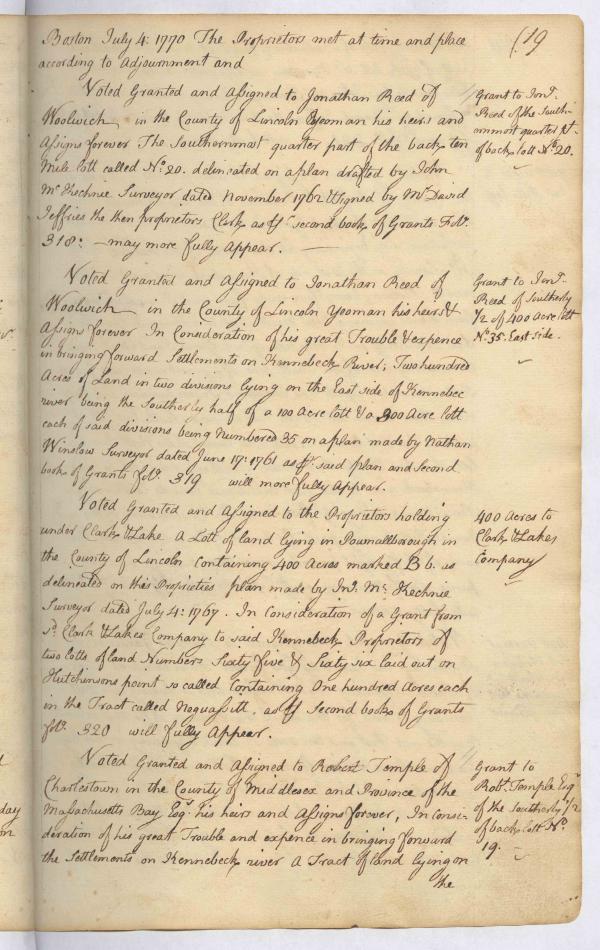 (19
Boston July 4: 1770 The Proprietors met at time and place
according to Adjournment and
Voted Granted and Assigned to Jonathan Reed of
Woolwich in the County of Lincoln Yeoman his heirs and
Assigns forever The Southernmost quarter part of the back ten
Mile lott called No. 20. delineated on a plan drafted by John
Mc Kechnie Surveyor dated November 1762 & Signed by Mr David
Jeffries the then proprietors Clerk as pr second book of Grants Folo.
318: — may more fully Appear. —
Grant to Jont.
Reed of the South-
ernmost quarter pt.
of back lott No. 20.
Voted Granted and Assigned to Jonathan Reed of
Woolwich in the County of Lincoln Yeoman his heirs &
Assigns forever In Consideration of his great Trouble & expence
in bringing forward Settlements on Kennebeck River, Two hundred
Acres of Land in two divisions lying on the East side of Kennebec
river being the Southerly half of a 100 Acre lott & a 300 Acre lott
each of said divisions being Numbered 35 on a plan made by Nathan
Winslow Surveyor dated June 17: 1761 as pr. said plan and Second
book of Grants folo. 319 will more fully Appear.
Grant to Jont.
Reed of Southerly
1/2 of 400 Acre lott
No. 35. East side.
Voted Granted and Assigned to the Proprietors holding
under Clark & Lake A Lott of land lying in Pownallborough in
the County of Lincoln Containing 400 Acres marked B b. as
delineated on this Proprieties plan made by Jno. Mc. Kechnie
Surveyor dated July 4: 1767. In Consideration of a Grant from
sd. Clark & Lakes Company to said Kennebeck Proprietors of
two lotts of land Numbers Sixty five & Sixty six laid out on
Hutchinsons point so called Containing One hundred Acres each
in the Tract called Noguassitt, as pr Second book of Grants
folo. 320 will fully Appear.
400 Acres to
Clark & Lakes
Company
Voted Granted and Assigned to Robert Temple of
Charlestown in the County of Middlesex and Province of the
Massachusetts Bay Esqr. his heirs and Assigns forever, In Consi-
deration of his great Trouble and expence in bringing forward
the Settlements on Kennebeck river A Tract of land lying on
the
Grant to
Robt. Temple Esqr
of the Southerly 1/2
of back lott No.
19.